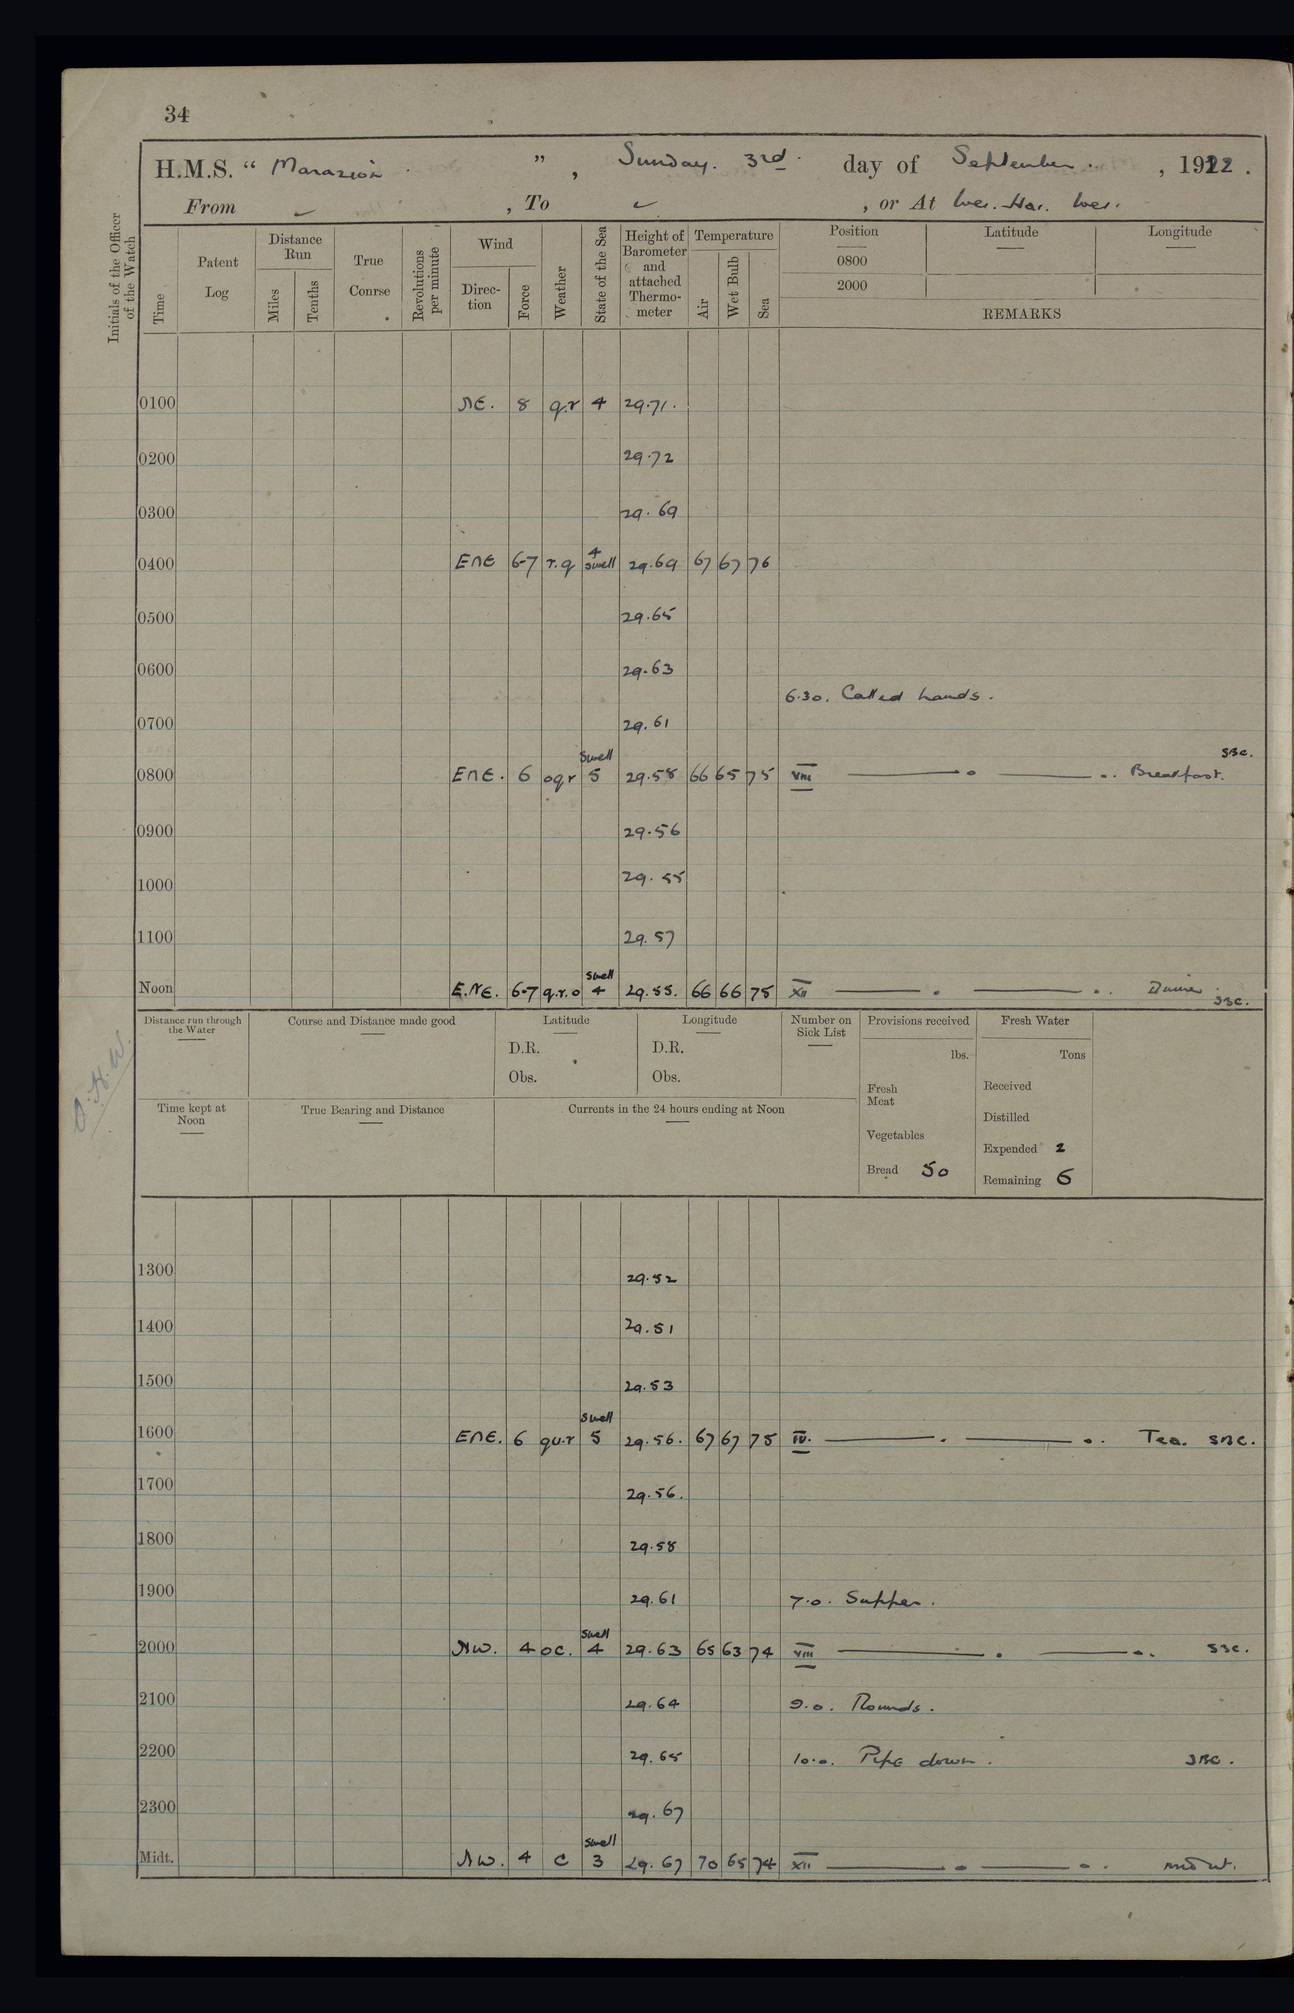 34
H.M.S. “ Marazion ” , Sunday. 3rd. day of September. , 1922.
From ✓ , To ✓ , or At Wei. Hai. Wei.
Initials of the Officer of the Watch
Time
Patent Log
Distance Run
Miles
Tenths
True Course
Revolutions per minute
Wind
Direction
Force
Weather
State of the Sea
Height of Barometer and attached Thermometer
Temperature
Air
Wet Bulb
Sea
Position Latitude Longitude
0800
2000
REMARKS
0100 NE. 8 q.r 4 29.71.
0200 29.72
0300 29.69
0400 ENE 6-7 r.q 4 swell 29.69 67 67 76
0500 29.65
0600 29.63
6.30. Called hands.
0700 29.61
0800 ENE. 6 oqr swell 5 29.58 66 65 75 VIII Breakfast. SBC.
0900 29.56
1000 29.55
1100 29.57
Noon E.NE. 6-7 q.r.o swell 4 29.55. 66 66 75 XII Dinner. SBC.
Distance run through the Water
Course and Distance made good
Latitude
D.R.
Obs.
Longitude
D.R.
Obs.
Number on Sick List
Provisions received
lbs.
Fresh Meat
Vegetables
Bread 50
Fresh Water
Tons
Received
Distilled
Expended 2
Remaining 6
Time kept at Noon
True Bearing and Distance
Currents in the 24 hours ending at Noon
O.H.W.
1300 29.52
1400 29.51
1500 29.53
1600 ENE. 6 qu.r swell 5 29.56. 67 67 75 IV. Tea. SBC.
1700 29.56.
1800 29.58
1900 29.61 7.0. Supper.
2000 NW. 4 oc. swell 4 29.63 65 63 74 VIII SBC.
2100 29.64 9.0. Rounds.
2200 29.65 10.0. Pipe down. SBC.
2300 29.67
Midt. NW. 4 c swell 3 29.67 70 65 74 XII